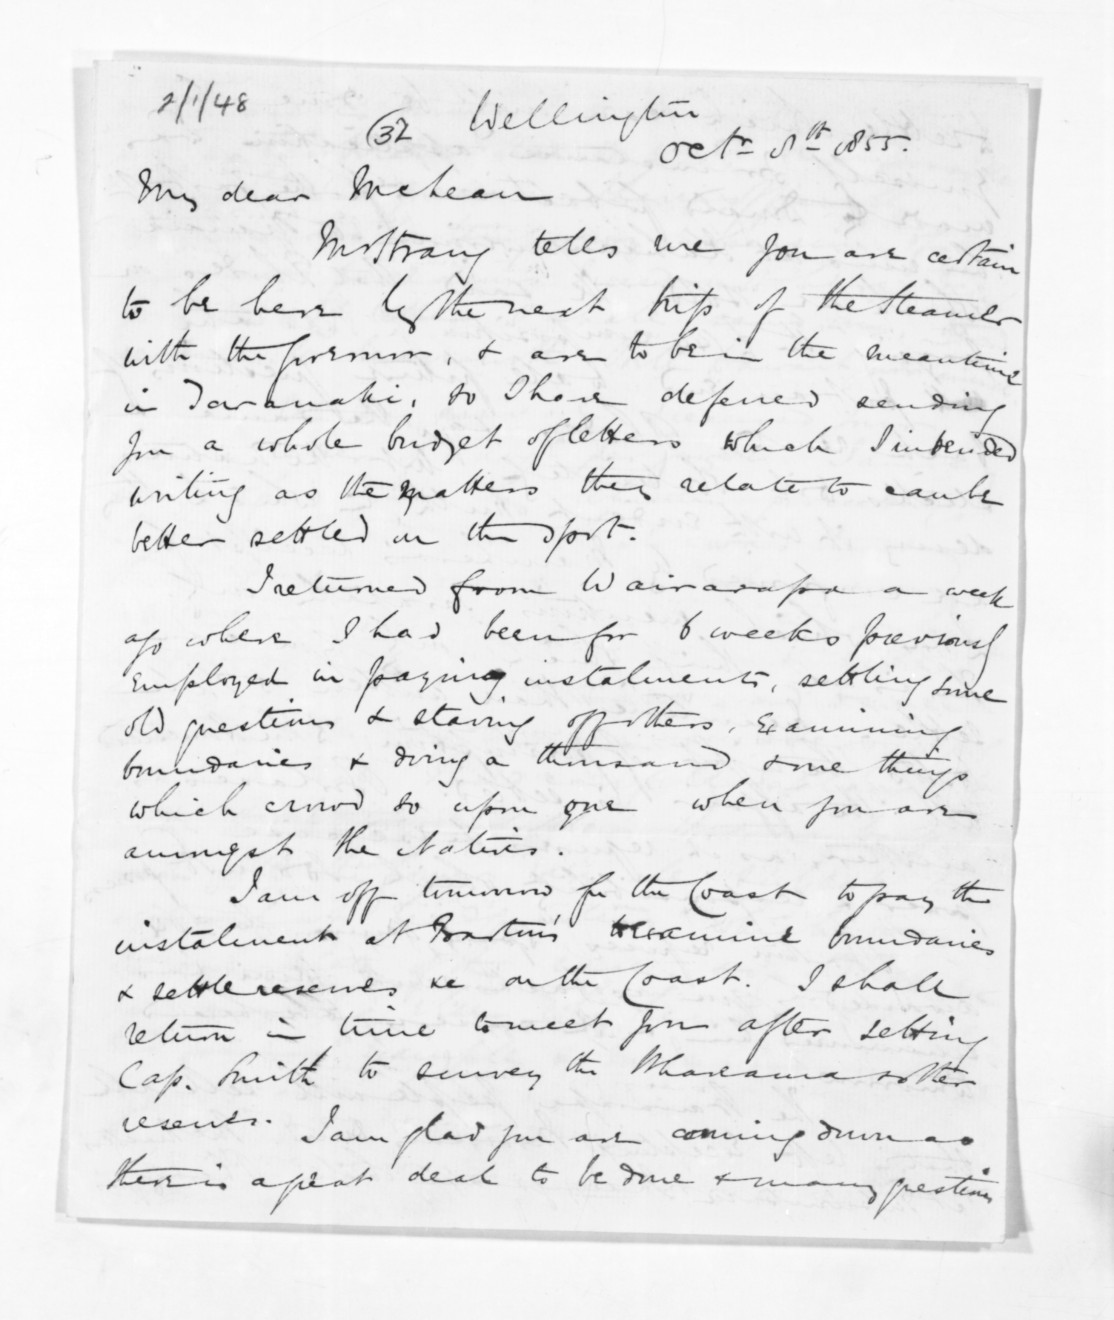 2/1/48
(32
Wellington
Octr 8th 1855.
My dear McLean
Mr Strang tells me you are certain
to be here by the next trip of the Steamer
with the Governor, & are to be in the meantime
in Taranaki, so I have deferred sending
you a whole budget of letters which I intended
writing as the matters they relate to can be
better settled on the spot.
I returned from Wairarapa a week
ago where I had been for 6 weeks previously
employed in paying instalments, settling some
old questions & staving off others, examining
boundaries & doing a thousand & one things
which crowd so upon one when you are
amongst the Natives.
I am off tomorrow for the Coast to pay the
instalment at to examine boundaries
& settle reserves &c on the Coast. I shall
return in time to meet you after setting
Cap. Smith to survey the Whareama & other
reserves.
I am glad you are coming down as
there is a great deal to be done & many questions